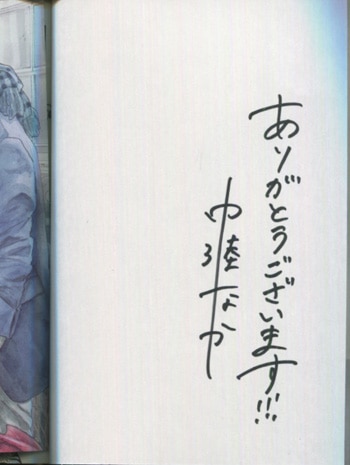 ありがとうございます!!!
中陸なか